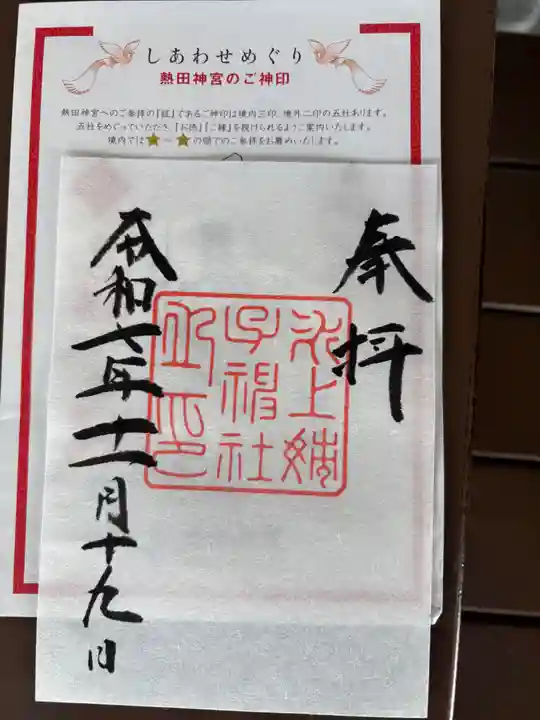 しあわせめぐり
熱田神宮のご神印
熱田神宮へのご参拝の『証』であるご神印は境内三印、境外二印の五社あります。
五社をめぐっていただき、『お徳』『ご縁』を授けられるようご案内いたします。
境内では★〜★の順でのご参拝をお薦めいたします。
奉拝
氷上姉
子神社
之印
令和七年十一月十九日